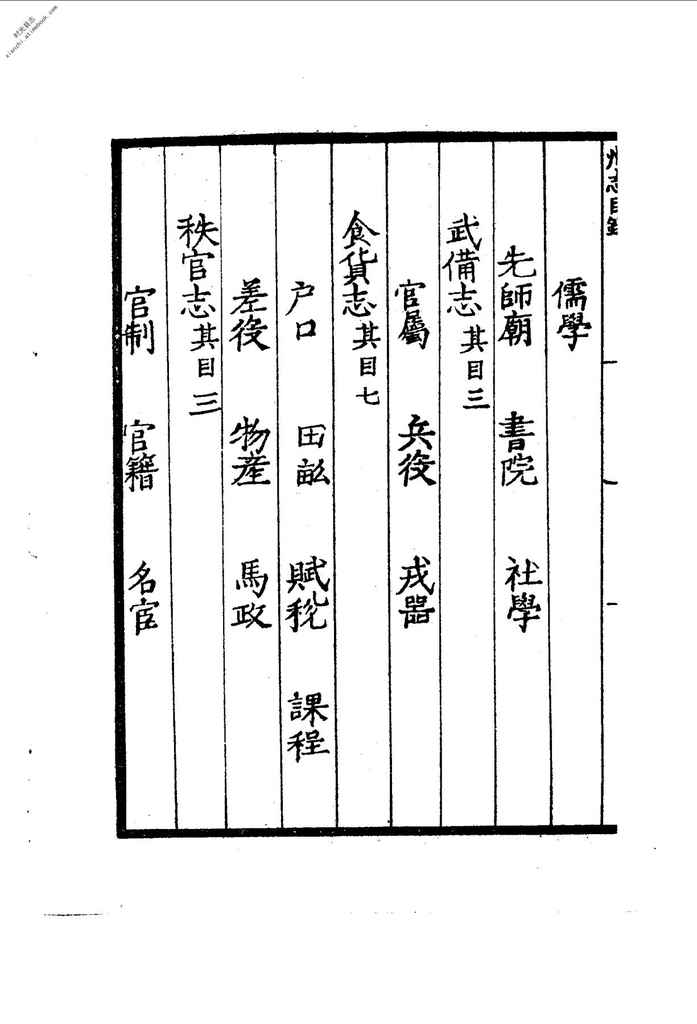 州志目錄
儒學
先師廟 書院 社學
武備志 其目三
官屬 兵役 戎器
食貨志 其目七
户口 田畝 賦稅 課程
差役 物產 馬政
秩官志 其目三
官制 官籍 名宦
时光县志